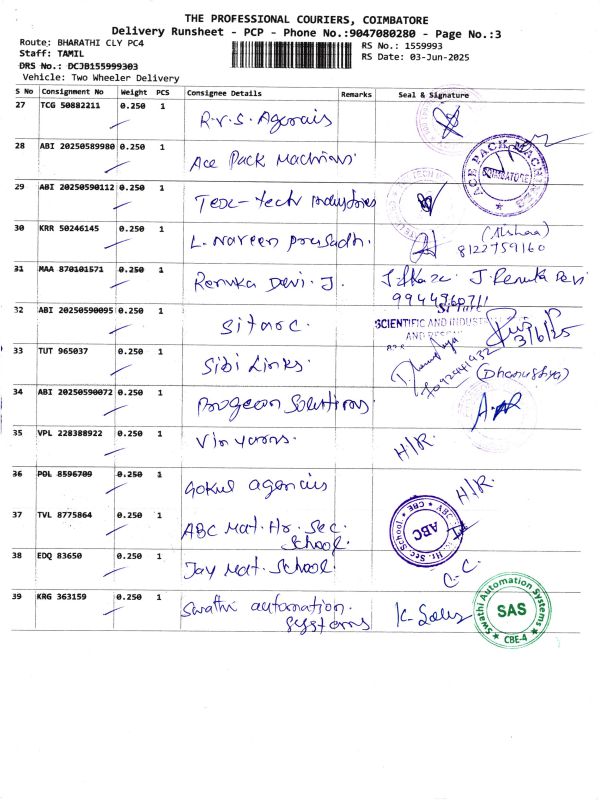 THE PROFESSIONAL COURIERS, COIMBATORE
Delivery Runsheet - PCP - Phone No.:9047080280 - Page No.:3
Route: BHARATHI CLY PC4 RS No.: 1559993
Staff: TAMIL RS Date: 03-Jun-2025
DRS No.: DCJB155999303
Vehicle: Two Wheeler Delivery
S No Consignment No Weight PCS Consignee Details Remarks Seal & Signature
27 TCG 50882211 0.250 1 R.V.S. Agencis
28 ABI 20250589980 0.250 1 Ace Pack Machines
ACE PACK MACHINES COIMBATORE
29 ABI 20250590112 0.250 1 Tech Industries
30 KRR 50246145 0.250 1 L. Naveen prasadh.
8122759160
31 MAA 870101571 0.250 1 Renuka Devi. J. J. Renuka Devi
9944960711
32 ABI 20250590095 0.250 1 Sitarc.
SCIENTIFIC AND INDUST
3/6/25
33 TUT 965037 0.250 1 Sibi Links.
(Dhanushya)
34 ABI 20250590072 0.250 1 Solutions
35 VPL 228388922 0.250 1 Vin yarns. H/R.
36 POL 8596709 0.250 1 Gokul agencis H/R.
37 TVL 8775864 0.250 1 ABC Mat. Hr. Sec.
School.
Hr. Sec School CBE ABC
38 EDQ 83650 0.250 1 Jay Mat. School. C-C.
39 KRG 363159 0.250 1 Swathi automation.
Systems
Swathi Automation Systems SAS CBE-4